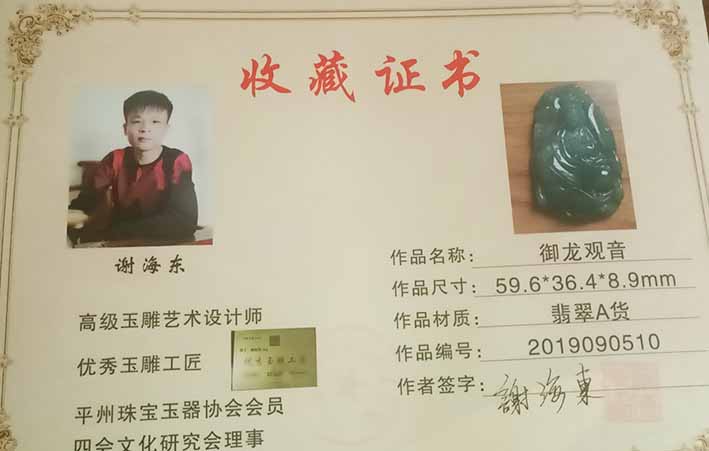 收藏证书
谢海东
高级玉雕艺术设计师
优秀玉雕工匠
平州珠宝玉器协会会员
四会文化研究会理事
作品名称：御龙观音
作品尺寸：59.6*36.4*8.9mm
作品材质：翡翠A货
作品编号：2019090510
作者签字：謝海東